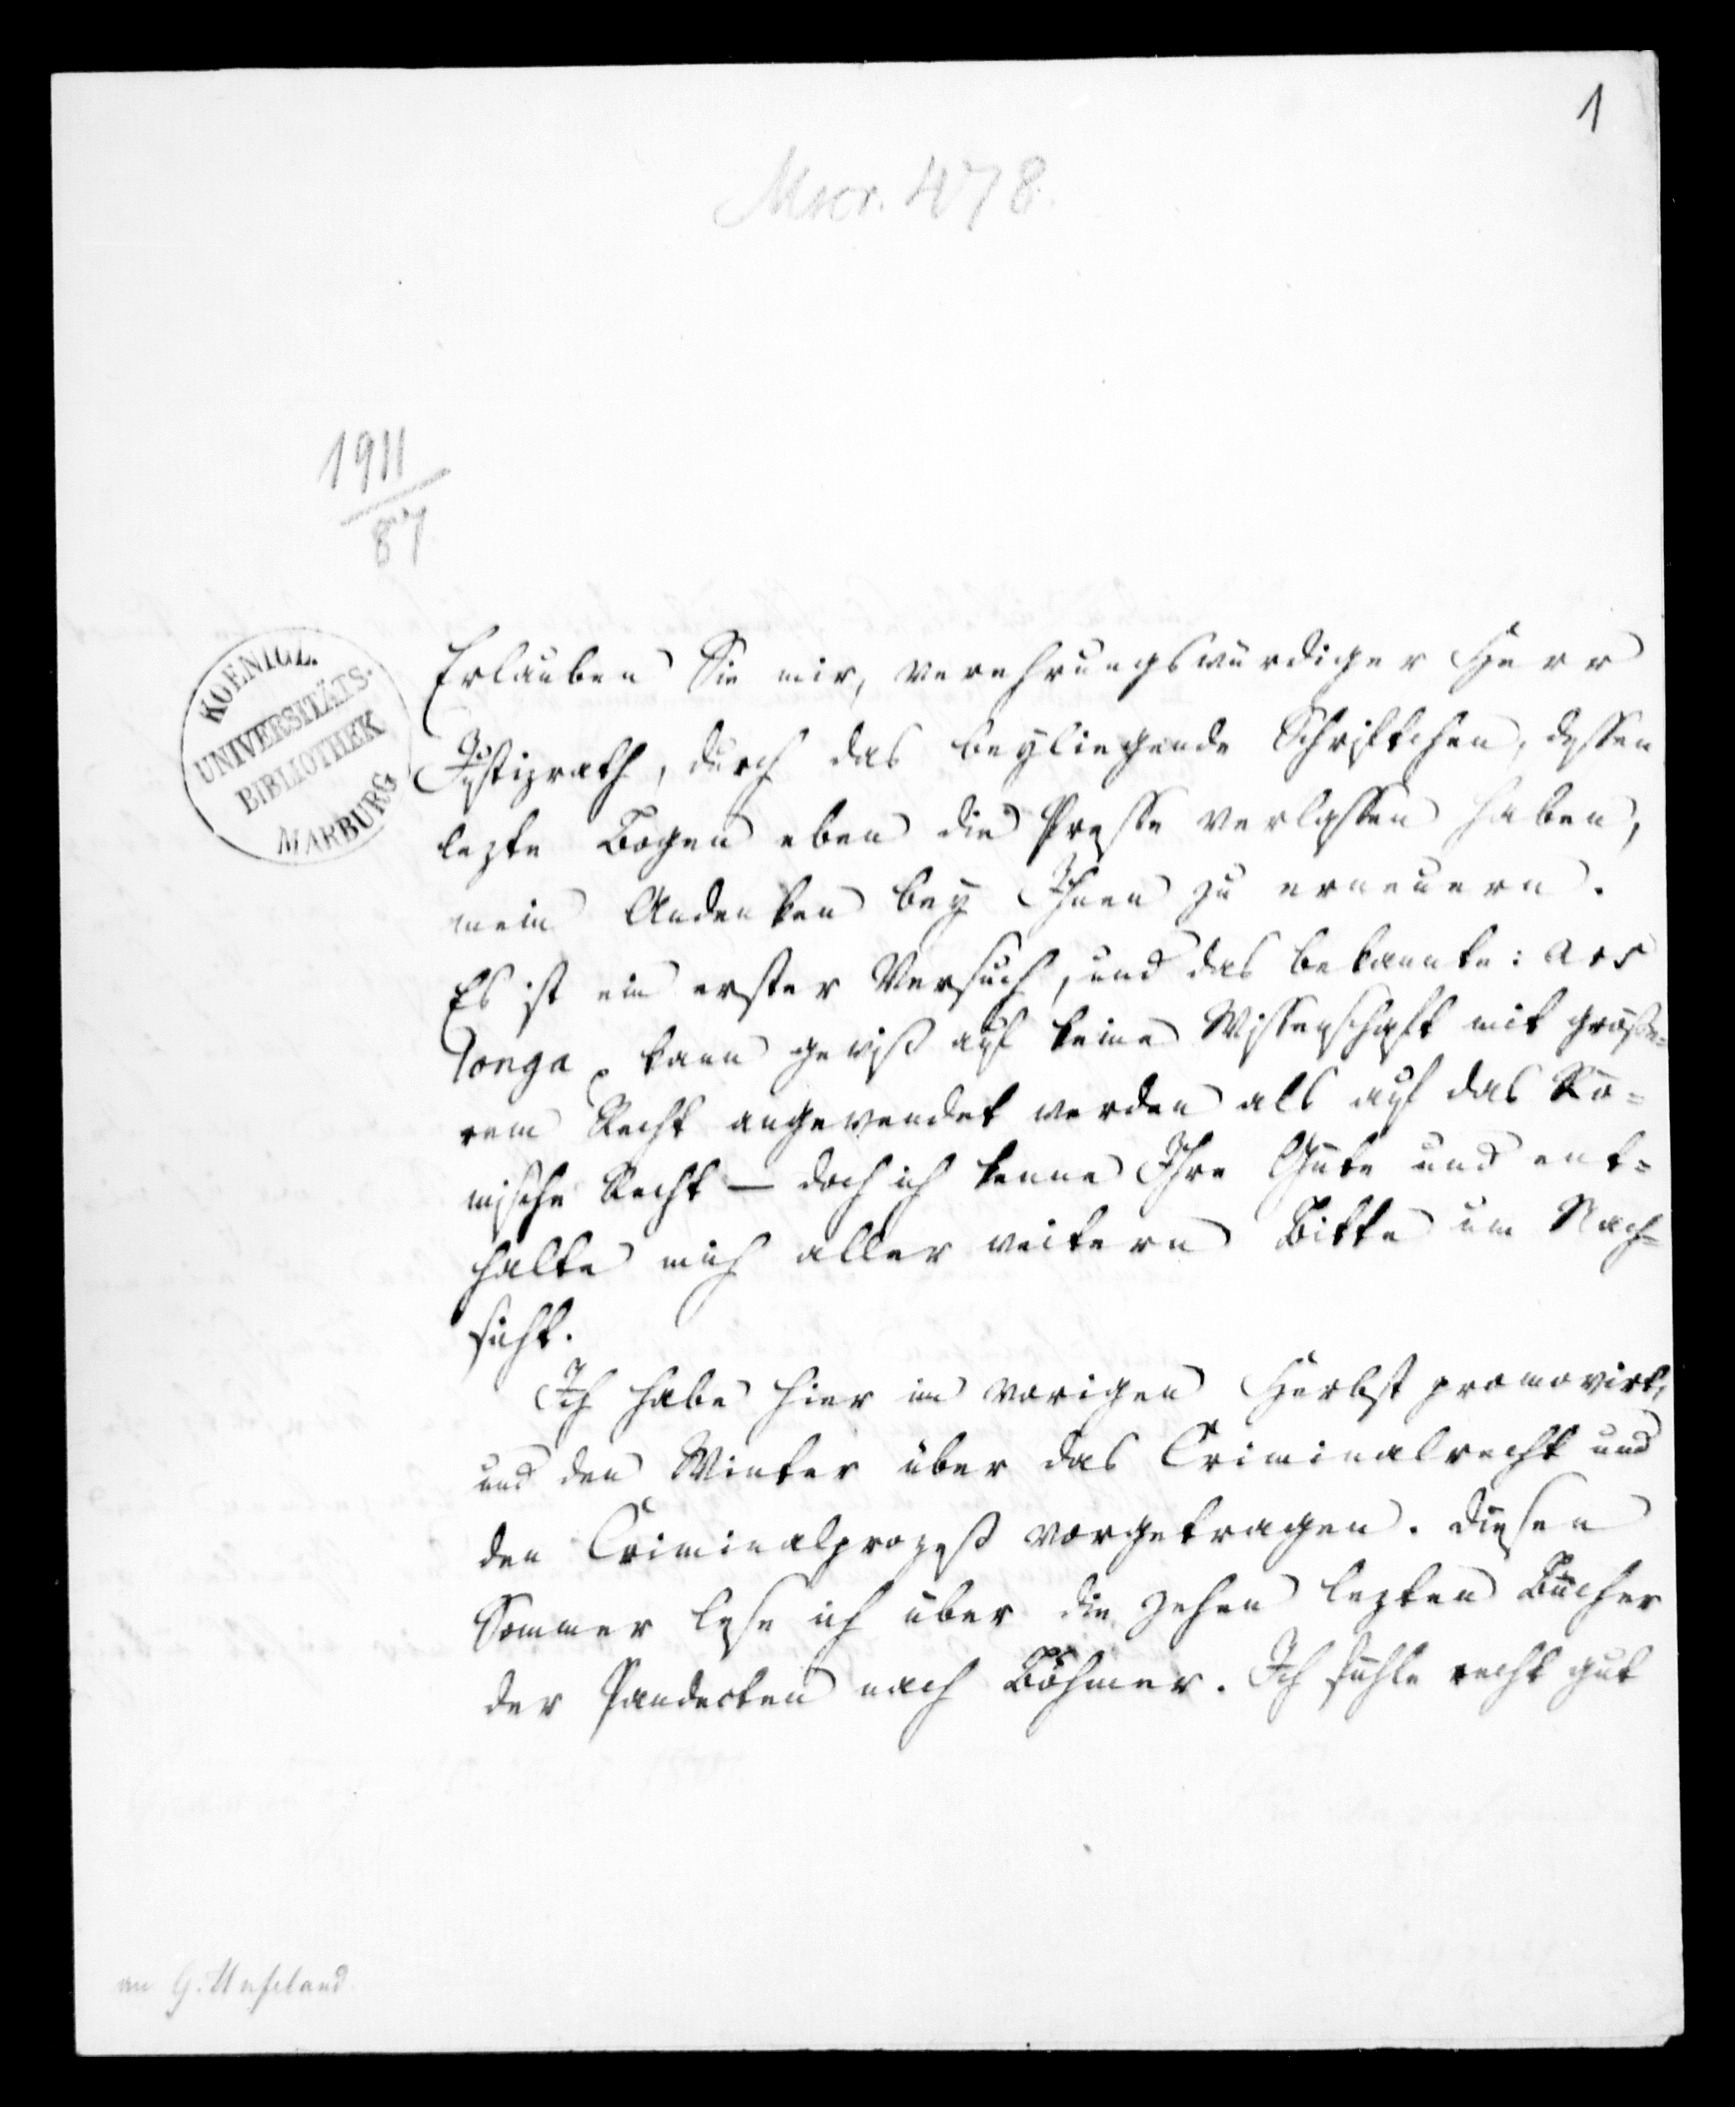 1
Mscr. 478.
1911
87
KOENIGL.
UNIVERSITÄTS-
BIBLIOTHEK
MARBURG
Erlauben Sie mir, verehrungswürdiger Herr
Justizrath, durch das beyliegende Schriftchen, dessen
lezte Bogen eben die Presse verlassen haben,
mein Andenken bey Ihnen zu erneuern.
Es ist ein erster Versuch, und das bekannte: ars
longa, kann gewiß auf keine Wissenschaft mit größe=
rem Recht angewendet werden als auf das Rö=
mische Recht — doch ich kenne Ihre Güte und ent=
halte mich aller weitern Bitte um Nach=
sicht.
Ich habe hier im vorigen Herbst promovirt,
und den Winter über das Criminalrecht und
den Criminalprozeß vorgetragen. Diesen
Sommer lese ich über die zehen lezten Bücher
der Pandecten nach Böhmer. Ich fühle recht gut
an G. Hufeland